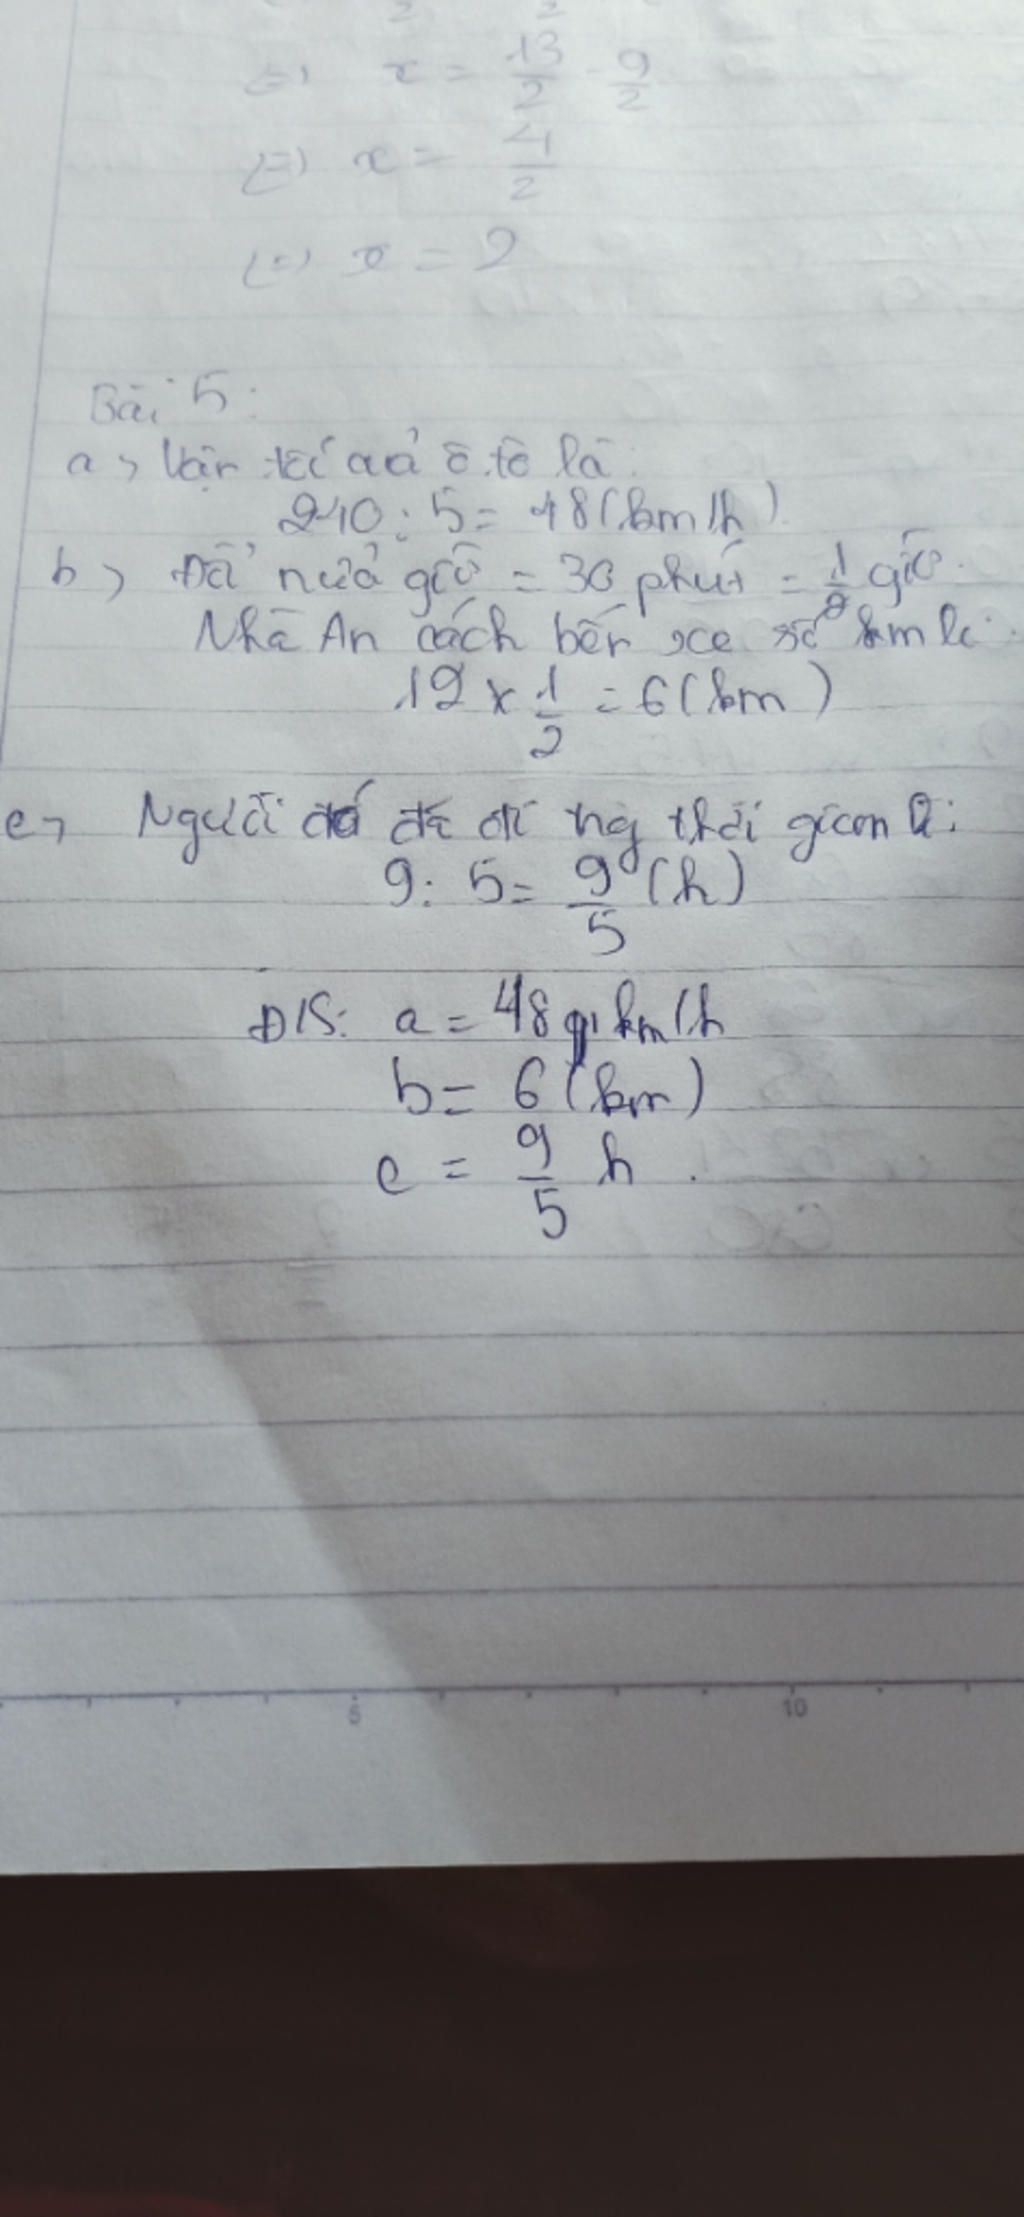 2 2
⇔ x = 13/2 - 9/2
⇔ x = 4/2
⇔ x = 2
Bài 5:
a> Vận tốc của ô tô là:
240 : 5 = 48 (km/h)
b> Đổi nửa giờ = 30 phút = 1/2 giờ.
Nhà An cách bến xe số km là:
12 x 1/2 = 6 (km)
c> Người đó đã đi trong thời gian là:
9 : 5 = 9/5 (h)
Đ/S: a = 48 km/h
b = 6 (km)
c = 9/5 h.
5 10